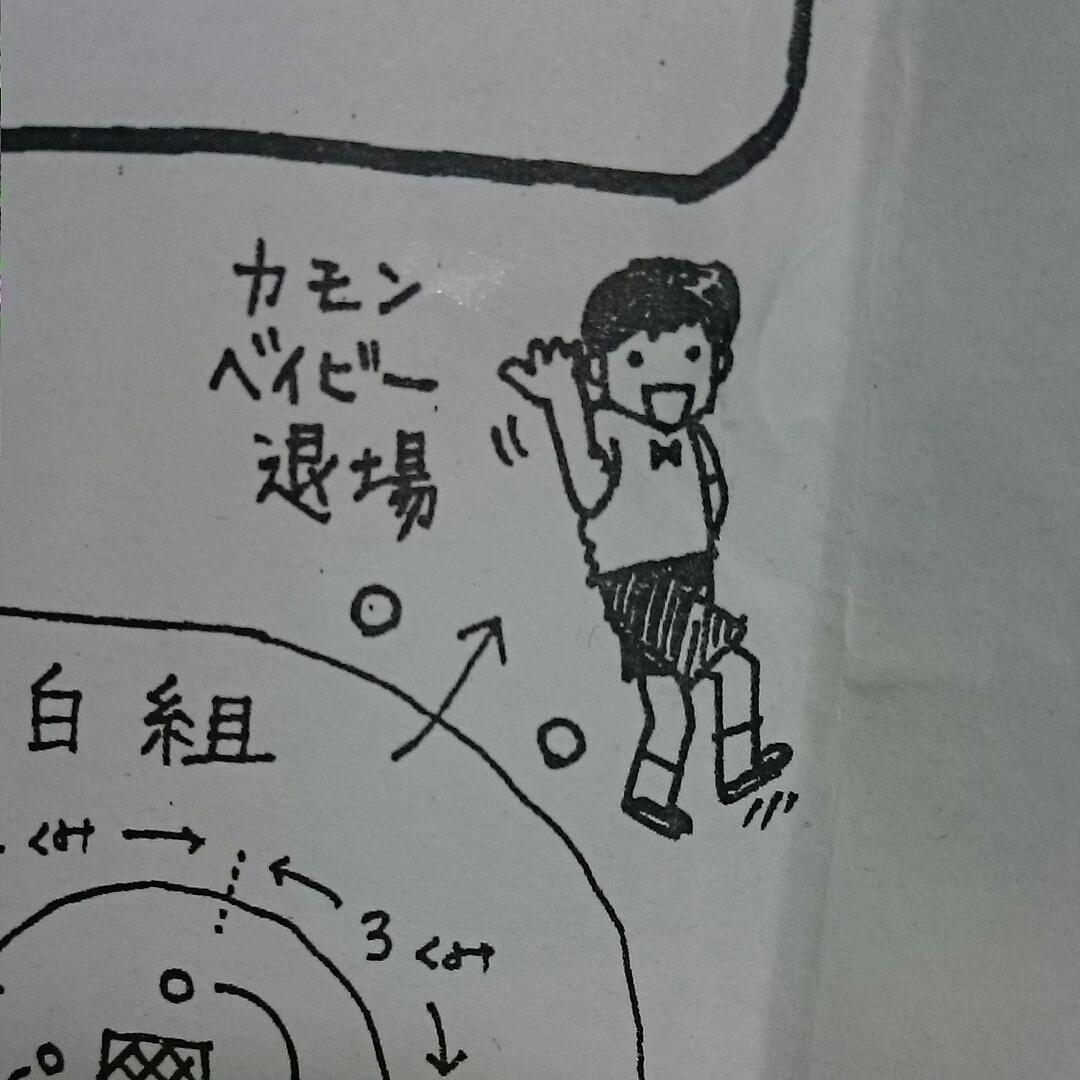 カモン
ベイビー
退場
白組
くみ
3くみ